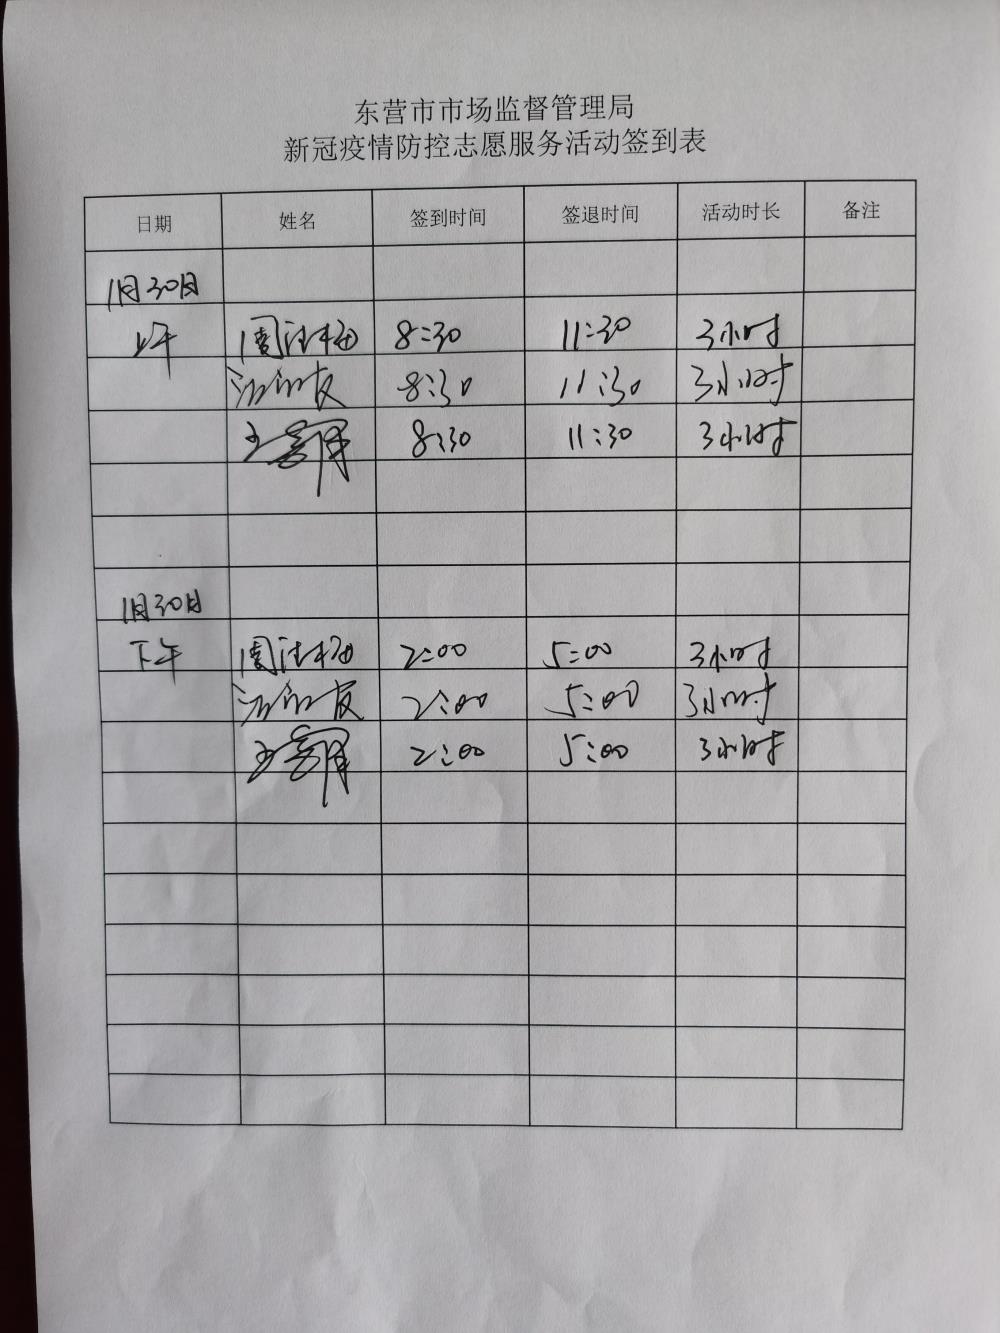 东营市市场监督管理局
新冠疫情防控志愿服务活动签到表
日期 姓名 签到时间 签退时间 活动时长 备注
1月30日
上午 周 8:30 11:30 3小时
8:30 11:30 3小时
王 8:30 11:30 3小时
1月30日
下午 周 2:00 5:00 3小时
2:00 5:00 3小时
王 2:00 5:00 3小时